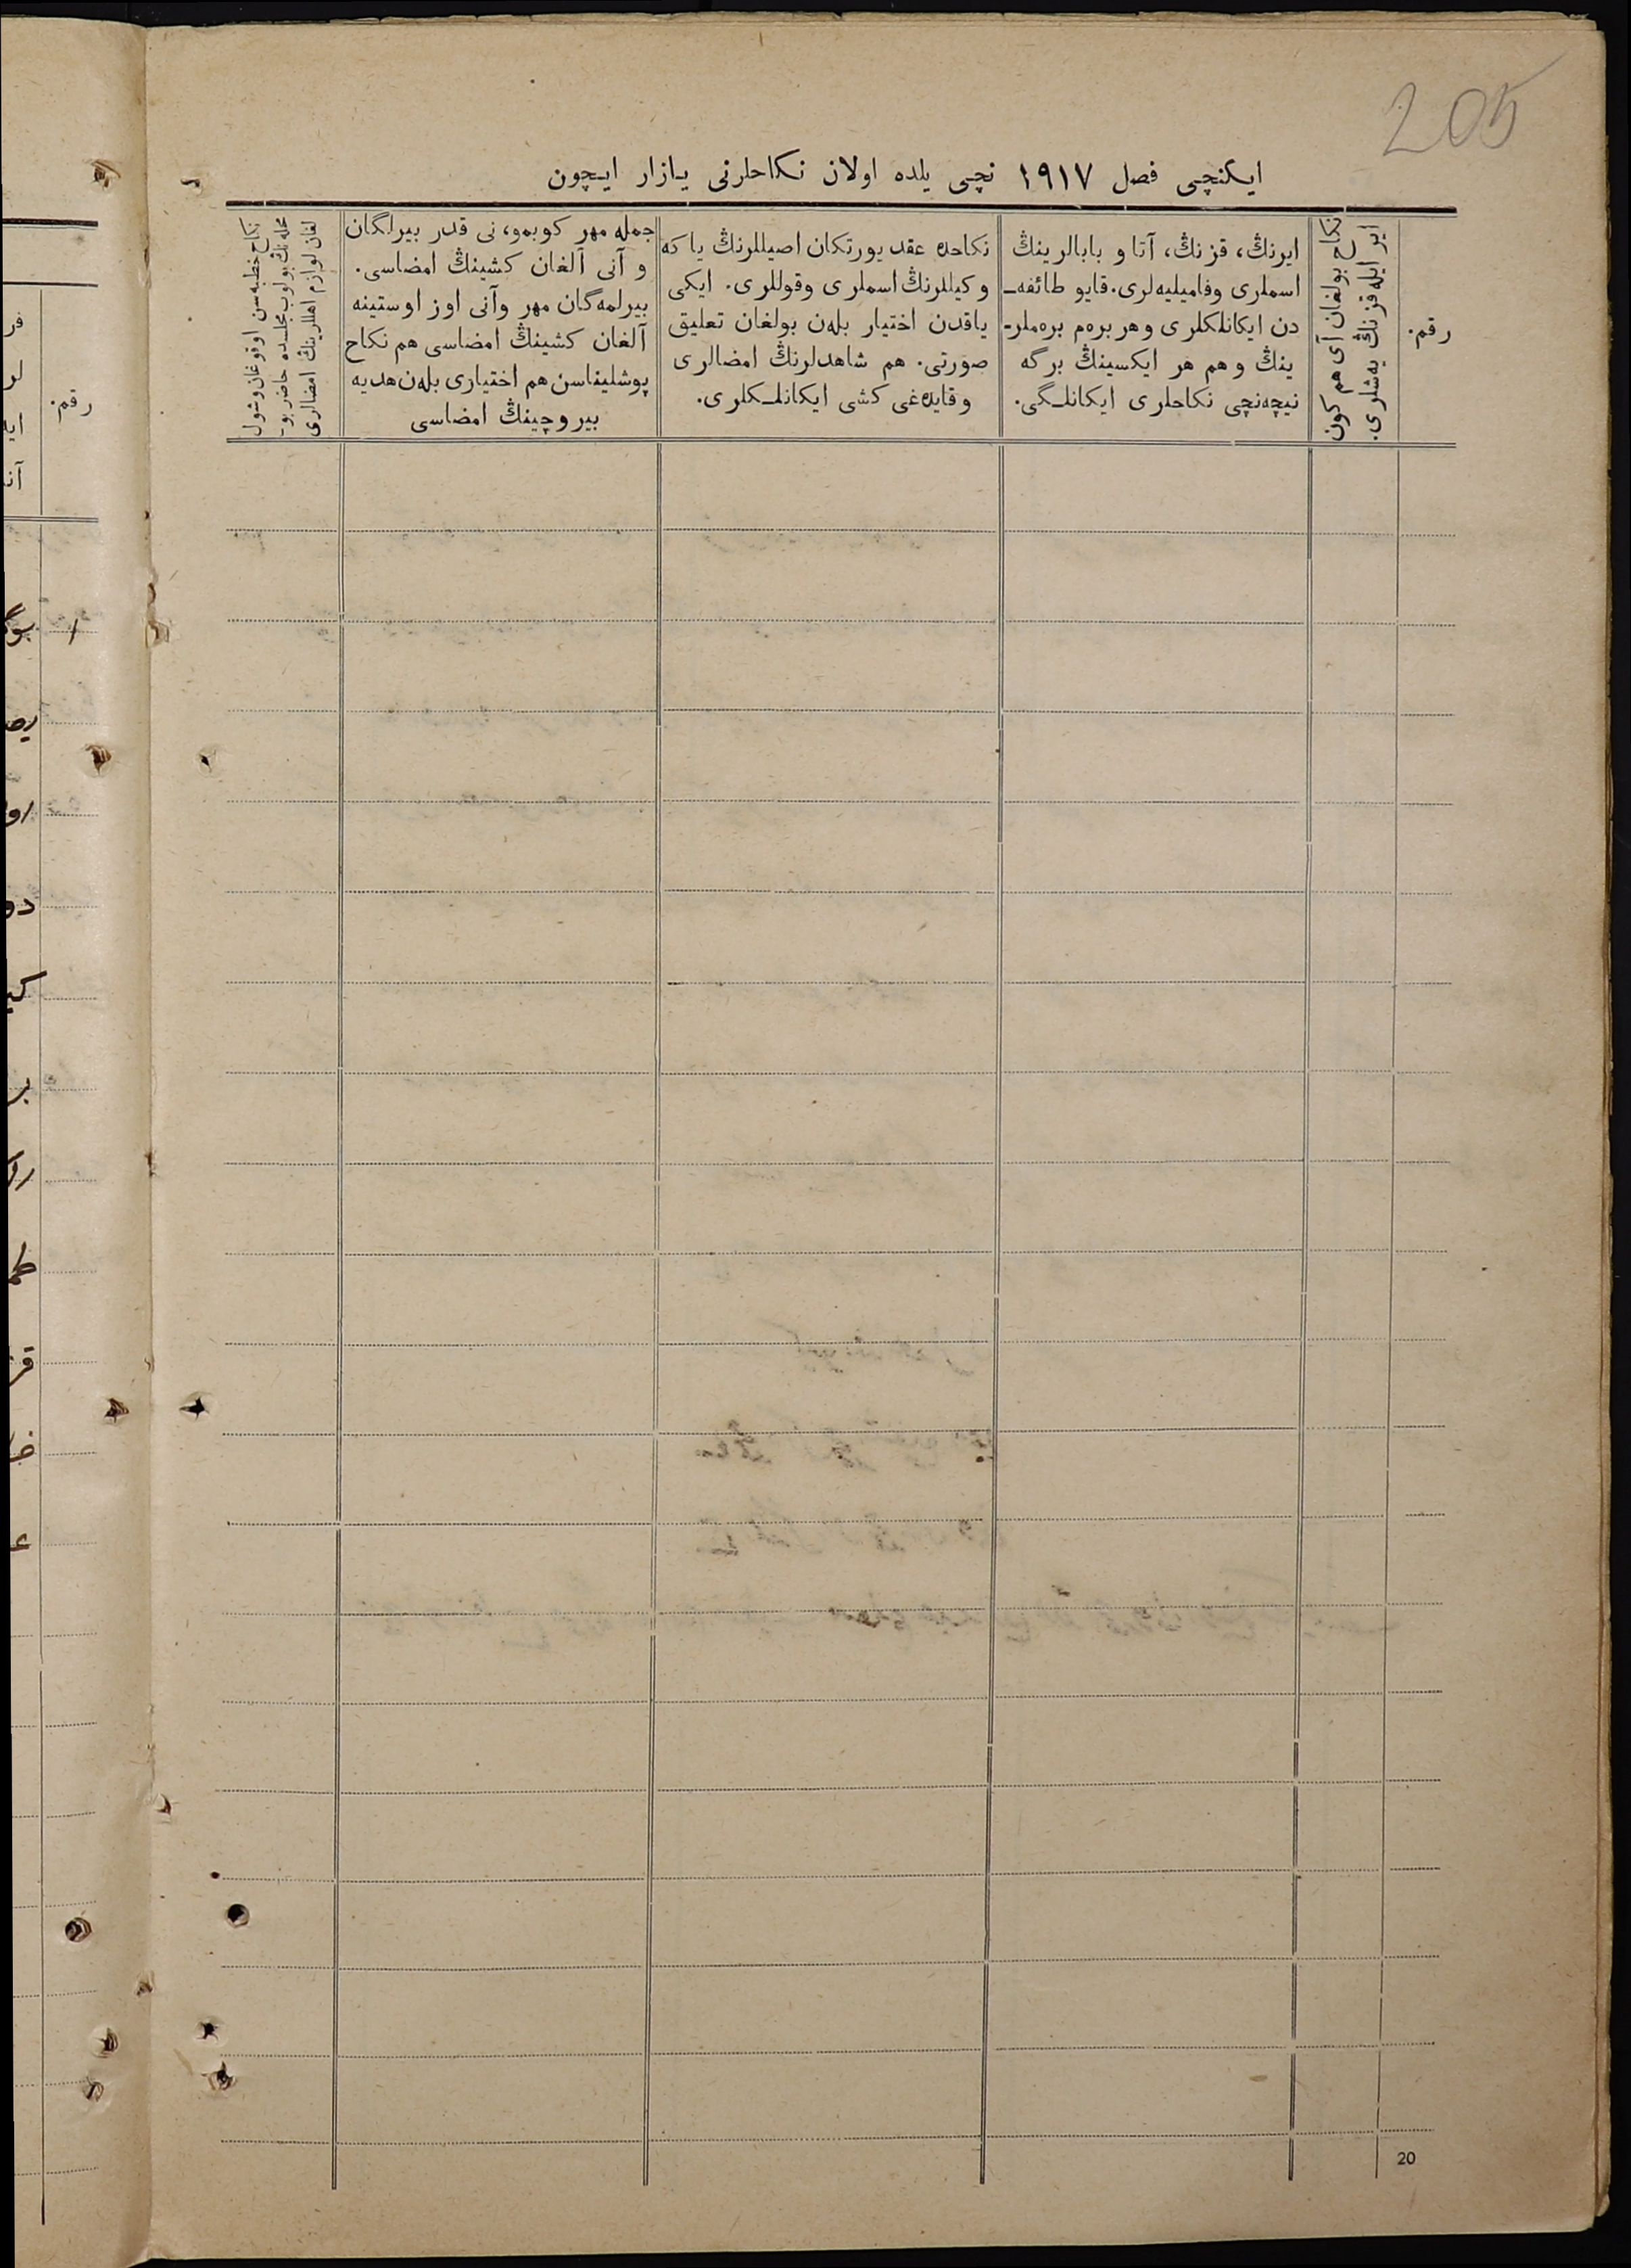 205
ایکنچی فصل ۱۹۱۷ نچی یلده اولان نکاحلرنی یازار ایچون
رقم.
نکاح بولغان آی هم کون
ایر ایله قزنڭ یه‌شلری.
ایرنڭ، قزنڭ، آتا و بابالرینڭ
اسملری وفامیلیه‌لری. قایو طائفه‌ـ
دن ایکانلکلری و هر بره‌م بره‌ملرـ
ینڭ و هم هر ایکسینڭ برگه
نیچه‌نچی نکاحلری ایکانلـگی.
نکاحده عقد یورتکان اصیللرنڭ یا که
وکیللرنڭ اسملری وقوللری. ایکی
یاقدن اختیار بله‌ن بولغان تعلیق
صورتی. هم شاهدلرنڭ امضالری
و قایده‌غی کشی ایکانلـکلری.
جمله مهر کوبمو، نی قدر بیرلگان
و آنی آلغان کشینڭ امضاسی.
بیرلمه‌گان مهر وآنی اوز اوستینه
آلغان کشینڭ امضاسی هم نکاح
پوشلیناسن هم اختیاری بله‌ن هدیه
بیروچینڭ امضاسی
نکاح خطبه‌سن اوقوغان وشول
محله‌نڭ بولوب مجلسده حاضر بوـ
لغان لوازم اهللرینڭ امضالری
رقم.
20